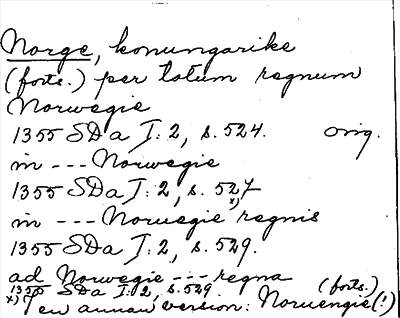 Norge, konungarike
(forts.) per totum regnum
Norwegie
1355 SDa I: 2, s. 524. orig.
in --- Norwegie
1355 SDa I: 2, s. 527 x)
in --- Noruegie regnis
1355 SDa I: 2, s. 529.
ad Norwegie --- regna
1355 SDa I: 2, s. 529. (forts.)
x) I en annan version: Noruengie (!)